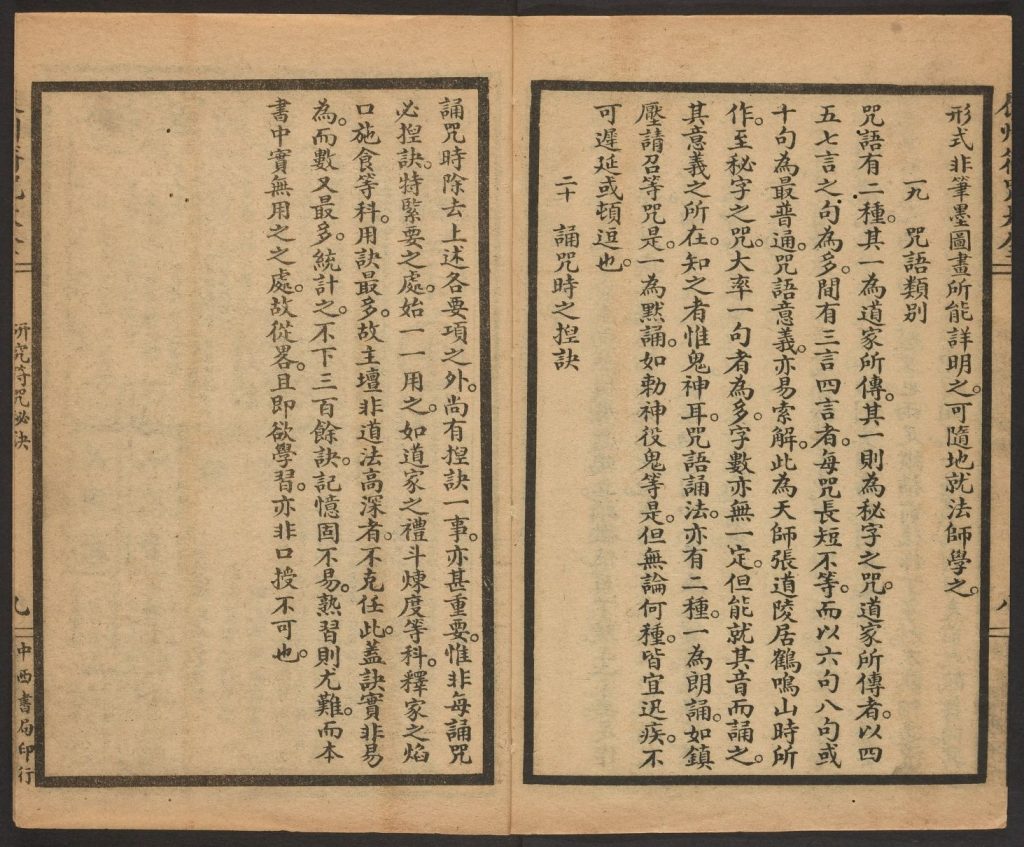 形式非筆墨圖畫所能詳明之。可隨地就法師學之。
一九　咒語類別
咒語有二種。其一為道家所傳。其一則為秘字之咒。道家所傳者。以四
五七言之句為多。間有三言四言者。每咒長短不等。而以六句八句或
十句為最普通。咒語意義。亦易索解。此為天師張道陵居鶴鳴山時所
作。至秘字之咒。大率一句者為多。字數亦無一定。但能就其音而誦之。
其意義之所在。知之者惟鬼神耳。咒語誦法。亦有二種。一為朗誦。如鎮
壓請召等咒是。一為默誦。如勅神役鬼等是。但無論何種。皆宜迅疾。不
可遲延或頓逗也。
二十　誦咒時之揑訣
八
誦咒時除去上述各要項之外。尚有揑訣一事。亦甚重要。惟非每誦咒
必揑訣。特緊要之處。始一一用之。如道家之禮斗煉度等科。釋家之焰
口施食等科。用訣最多。故主壇非道法高深者。不克任此。蓋訣實非易
為。而數又最多。統計之。不下三百餘訣。記憶固不易。熟習則尤難。而本
書中實無用之之處。故從畧。且即欲學習。亦非口授不可也。
研究符咒秘訣
九
中西書局印行